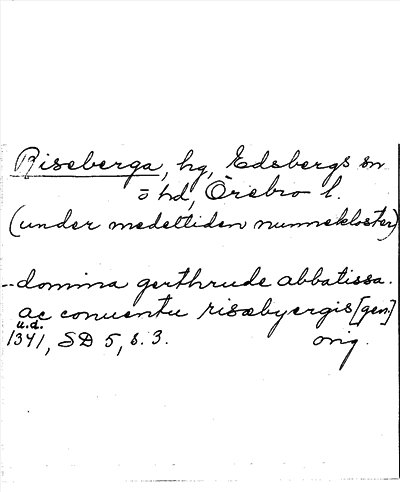 Riseberga, hg, Edsbergs sn
o hd, Örebro l.
(under medeltiden nunnekloster)
-- domina gerthrude abbatissa.
ac conuentu risæbyergis [gen.]
u.d.
1341, SD 5, s. 3. orig.